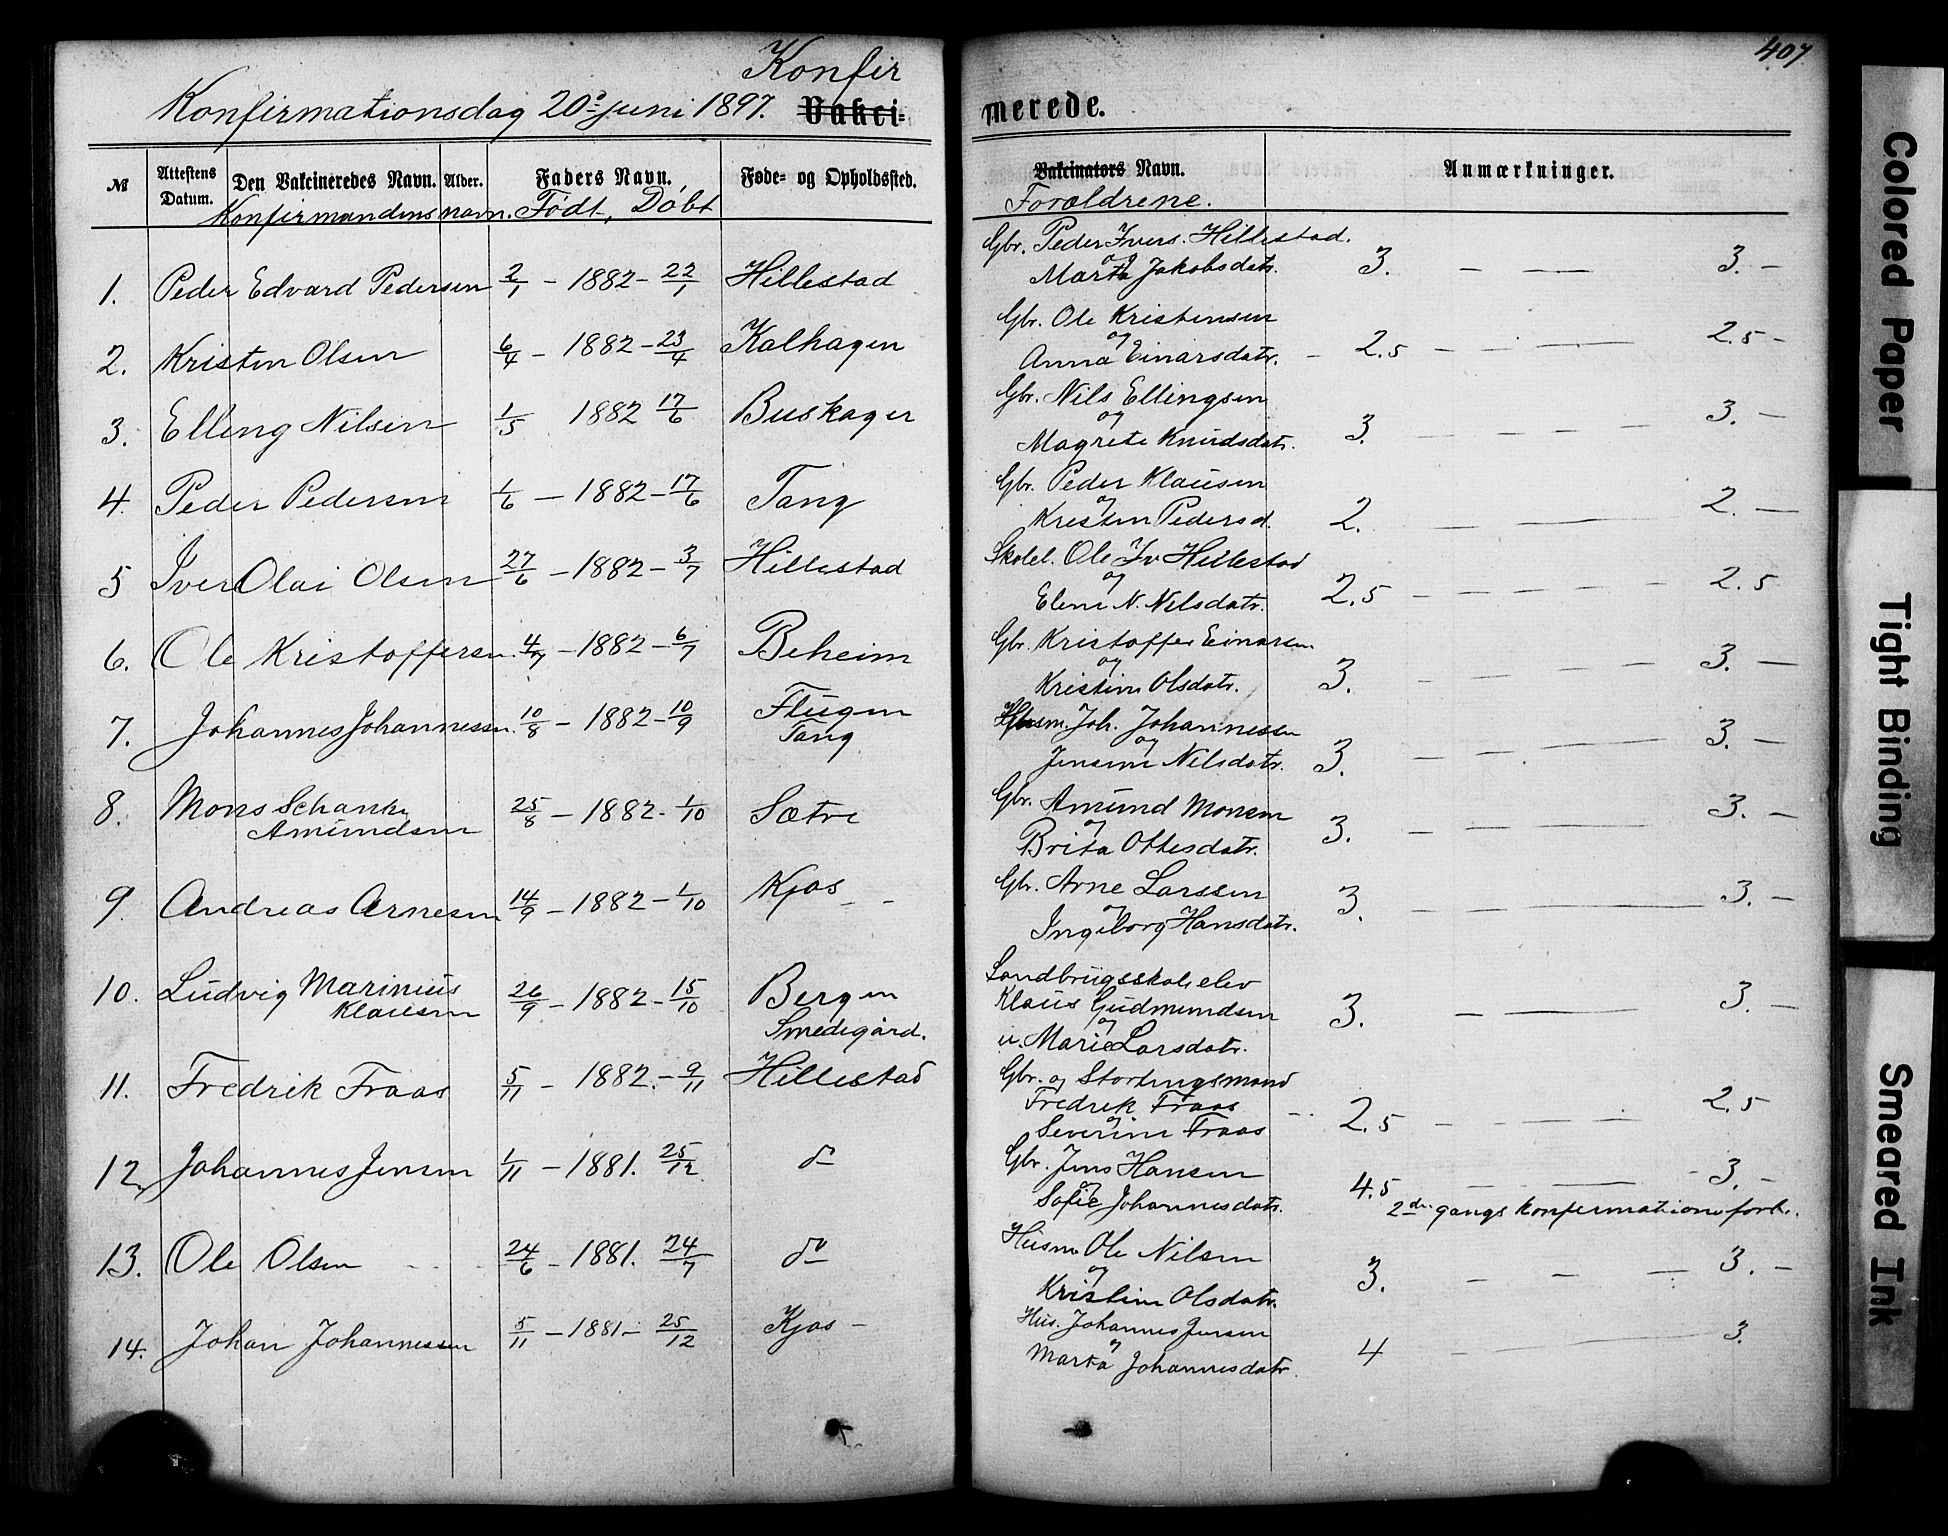 407
Konfir
Konfirmationsdag 20de juni 1897. Vakci=
merede.
№ Attestens Datum. Den Vakcineredes Navn. Alder. Faders Navn. Føde= og Opholdssted. Vakcinators Navn. Anmærkninger.
Konfirmandens navn. Født, Døbt Forældrene.
Gbr. Peder Ivers. Hillestad.
og
1. Peder Edvard Pedersen 2/1 - 1882 - 22/1 Hillestad Marta Jakobsdatr. 3. — — — 3. —
Gbr. Ole Kristensen
og
2. Kristen Olsen 6/4 - 1882 - 23/4 Kalhagen Anna Einarsdatr. - 2.5 — — — 2.5 -
Gbr. Nils Ellingsen
og
3. Elling Nilsen 1/5 1882 17/6 Buskager Magrete Knudsdatr. 3. — — — 3. —
Gbr. Peder Klausen
og
4. Peder Pedersen 1/6 — 1882 - 17/6 Tang Kristen Pedersd. 2. — — — 2. —
Skolel. Ole Iv Hillestad
og
5 Iver Olai Olsen 27/6 — 1882 - 3/7 Hillestad Eleni N. Nilsdatr. 2.5 — — — 2.5
Gbr. Kristoffer Einarsen
og
6. Ole Kristoffersen. 4/7 - 1882 - 6/7 Beheim Kristine Olsdatr. 3. — — — 3. —
Husm. Joh. Johannessen
og
7. Johannes Johannessen. 10/8 - 1882 - 10/9 Flugen
Tang Jensine Nilsdatr. 3. — — — 3. —
Gbr. Amund Monsen
og
8. Mons Schanke
Amundsen 25/8 - 1882 - 1/10 Sætre Brita Ottesdatr. 3. — — — 3. —
Gbr. Arne Larssen
og
9. Andreas Arnesen 14/9 - 1882 - 1/10 Kjos - - Ingeborg Hansdatr. 3. — — — 3. —
Landbrugsskole elev
10. Ludvig Marinius
Klausen 26/9 - 1882 - 15/10 Bergen
Smedegård. Klaus Gudmundsen 3. — — — 3. —
og
u. Marie Larsdatr.
Gbr. og Stortingsmand
11. Fredrik Fraas 5/11 - 1882. - 9/11 Hillestad Fredrik Fraas - 2.5 — — — 2.5
og
Severine Fraas
Gbr. Jens Hansen
og
12. Johannes Jensen 1/11 - 1881. 25/12 do Sofie Johannesdatr. 4.5 — — — 3. -
2den gangs konfermations forb.
Husm Ole Nilsen
og
13. Ole Olsen 24/6 - 1881. 24/7 do Kristine Olsdatr. 3. — — — 3. —
Hus. Johannes Jensen
og
14. Johan Johannessen 5/11 - 1881 - 25/12 Kjos - Marta Johannesdatr. 4 — — 3.
Colored Paper
Tight Binding
Smeared Ink